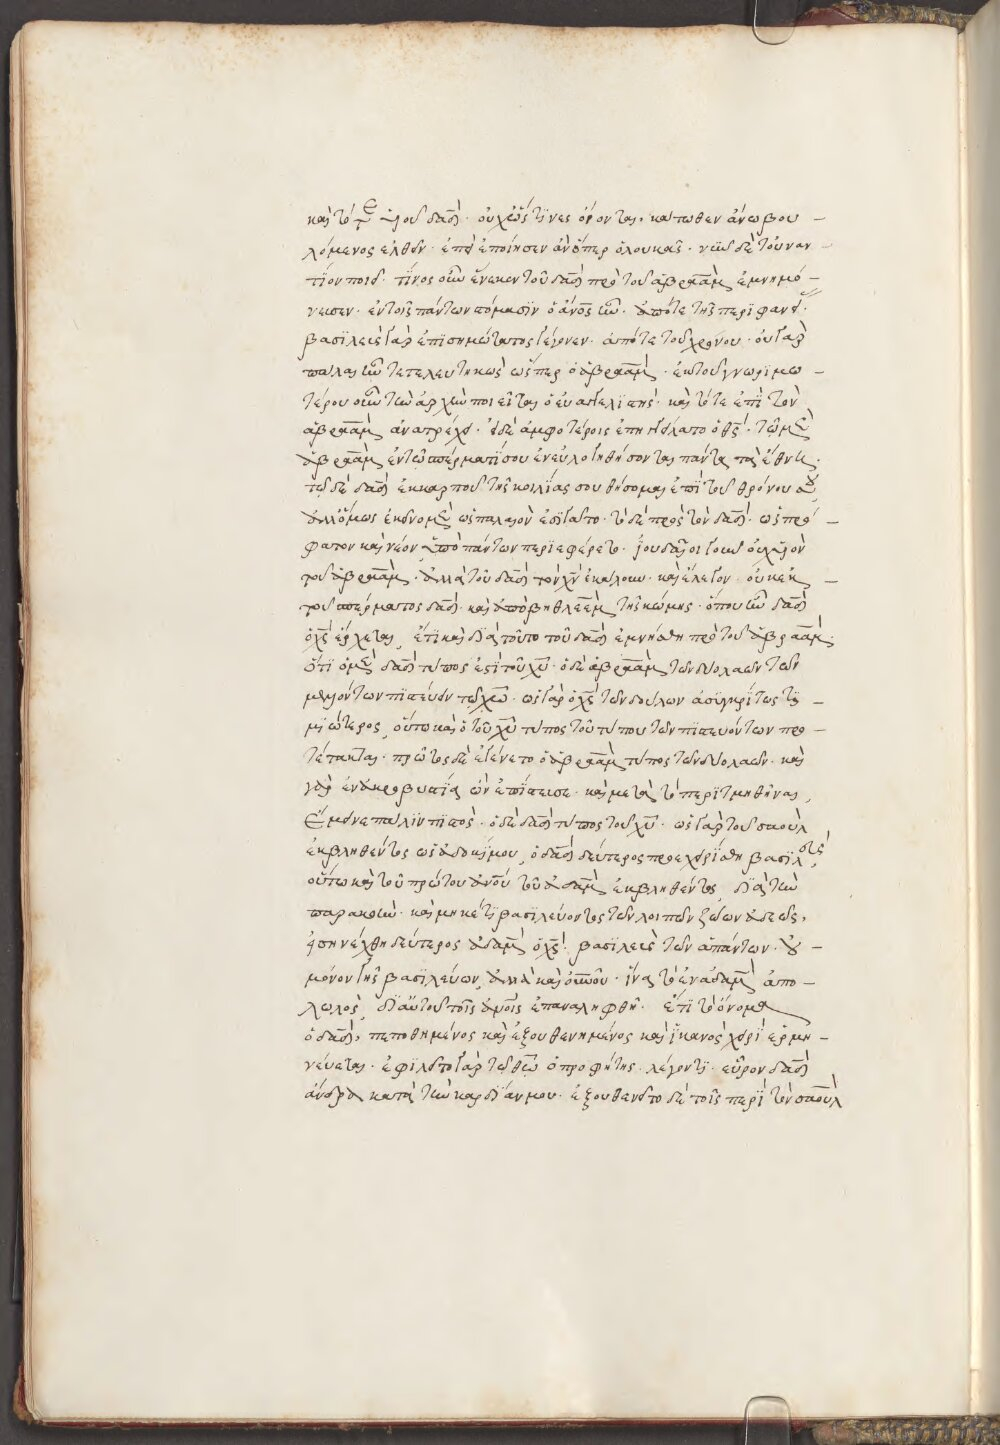 καὶ τὸ ἐξ υἱοῦ δαδ̄. οὐχ ὥς τινες οἴονται, κάτωθεν ἄνω βου –
λόμενος ἐλθεῖν. ἐπεὶ ἐποίησεν ἂν ὅπερ ὁ λουκᾶς. νῦν δὲ τοὐναν –
τίον ποιεῖ. τίνος οὖν ἕνεκεν τοῦ δαδ̄ πρὸ τοῦ ἀβραὰμ ἐμνημό –
νευσεν. ἐν τοῖς πάντων στόμασιν ὁ ἄνος̄ ἦν. ἀπό τε τῆς περιφανείας.
βασιλεὺς γὰρ ἐπισημότατος γέγονεν. ἀπό τε τοῦ χρόνου. οὐ γὰρ
πάλαι ἦν τετελευτηκὼς ὥσπερ ὁ ἀβραάμ. ἐκ τοῦ γνωριμω –
τέρου οὖν τὴν ἀρχὴν ποιεῖται ὁ εὐαγγελιστής. καὶ τότε ἐπὶ τὸν
ἀβραὰμ ἀνατρέχει. εἰ δὲ ἀμφοτέροις ἐπηγγείλατο ὁ θς̄. τῷ μὲν
ἀβραὰμ ἐν τῷ σπέρματί σου ἐνευλογηθήσονται πάντα τὰ ἔθνη.
τῷ δὲ δαδ̄ ἐκ καρποῦ τῆς κοιλίας σου θήσομαι ἐπὶ τοῦ θρόνου σου,
ἀλλ' ὅμως ἐκεῖνο μὲν ὡς παλαιὸν ἐσίγατο. τὸ δὲ πρὸς τὸν δαδ̄. ὡς πρό –
φατον καὶ νέον ὑπὸ πάντων περιεφέρετο. ἰουδαῖοι γοῦν
τοῦ ἀβραάμ. ἀλλὰ τοῦ δαδ̄ τὸν χν̄ ἐκάλουν. καὶ ἔλεγον. οὐκ ἐκ –
τοῦ σπέρματος δαδ̄. καὶ ἀπὸ βηθλεὲμ τῆς κώμης. ὅπου ἦν δαδ̄
ὁ χς̄ ἔρχεται, ἔτι καὶ διὰ τοῦτο τοῦ δαδ̄ ἐμνήσθη πρὸ τοῦ ἀβραάμ.
ὅτι ὁ μὲν δαδ̄ τύπος ἐστὶ τοῦ χῡ. ὁ δὲ ἀβραὰμ τῶν δύο λαῶν τῶν
μελλόντων πιστεύειν τῷ χω̄. ὡς γὰρ ὁ χς̄ τῶν δούλων ἀσυγκρίτως τι –
μιώτερος, οὕτω καὶ ὁ τοῦ χῡ τύπος τοῦ τύπου τῶν πιστευόντων προ –
τέτακται. πρῶτος δὲ ἐγένετο ὁ ἀβραὰμ τύπος τῶν δύο λαῶν. καὶ
γὰρ ἐν ἀκροβυστίᾳ ὢν ἐπίστευσε. καὶ μετὰ τὸ περιτμηθῆναι,
ἔμεινε πάλιν πιστός. ὁ δὲ δαδ̄ τύπος τοῦ χῡ. ὡς γὰρ τοῦ σαοὺλ
ἐκβληθέντος ὡς ἀδοκίμου, ὁ δαδ̄ δεύτερος προεχειρίσθη βασιλεὺς,
οὕτω καὶ τοῦ πρώτου ἀνου̅ τοῦ ἀδὰμ ἐκβληθέντος, διὰ τὴν
παρακοὴν. καὶ μηκέτι βασιλεύοντος τῶν λοιπῶν ζώων ἀδεῶς,
ἐπηνέχθη δεύτερος ἀδὰμ ὁ χς̄. βασιλεὺς τῶν ἁπάντων. οὐ –
μόνον γῆς βασιλεύων, ἀλλὰ καὶ οὐνου̅. ἵνα τὸ ἐν ἀδὰμ ἀπο –
λωλὸς, δι' αὐτοῦ τοῖς ἀνοις̅ ἐπαναληφθῇ. ἔτι τὸ ὄνομα
ὁ δαδ̄, πεποθημένος καὶ ἐξουθενημένος καὶ ἱκανὸς χειρὶ ἑρμη –
νεύεται. ἐφιλεῖτο γὰρ τῷ θω̄ ὁ προφήτης. λέγοντι. εὗρον δαδ̄
ἄνδρα κατὰ τὴν καρδίαν μου. ἐξουθενεῖτο δὲ τοῖς περὶ τὸν σαοὺλ